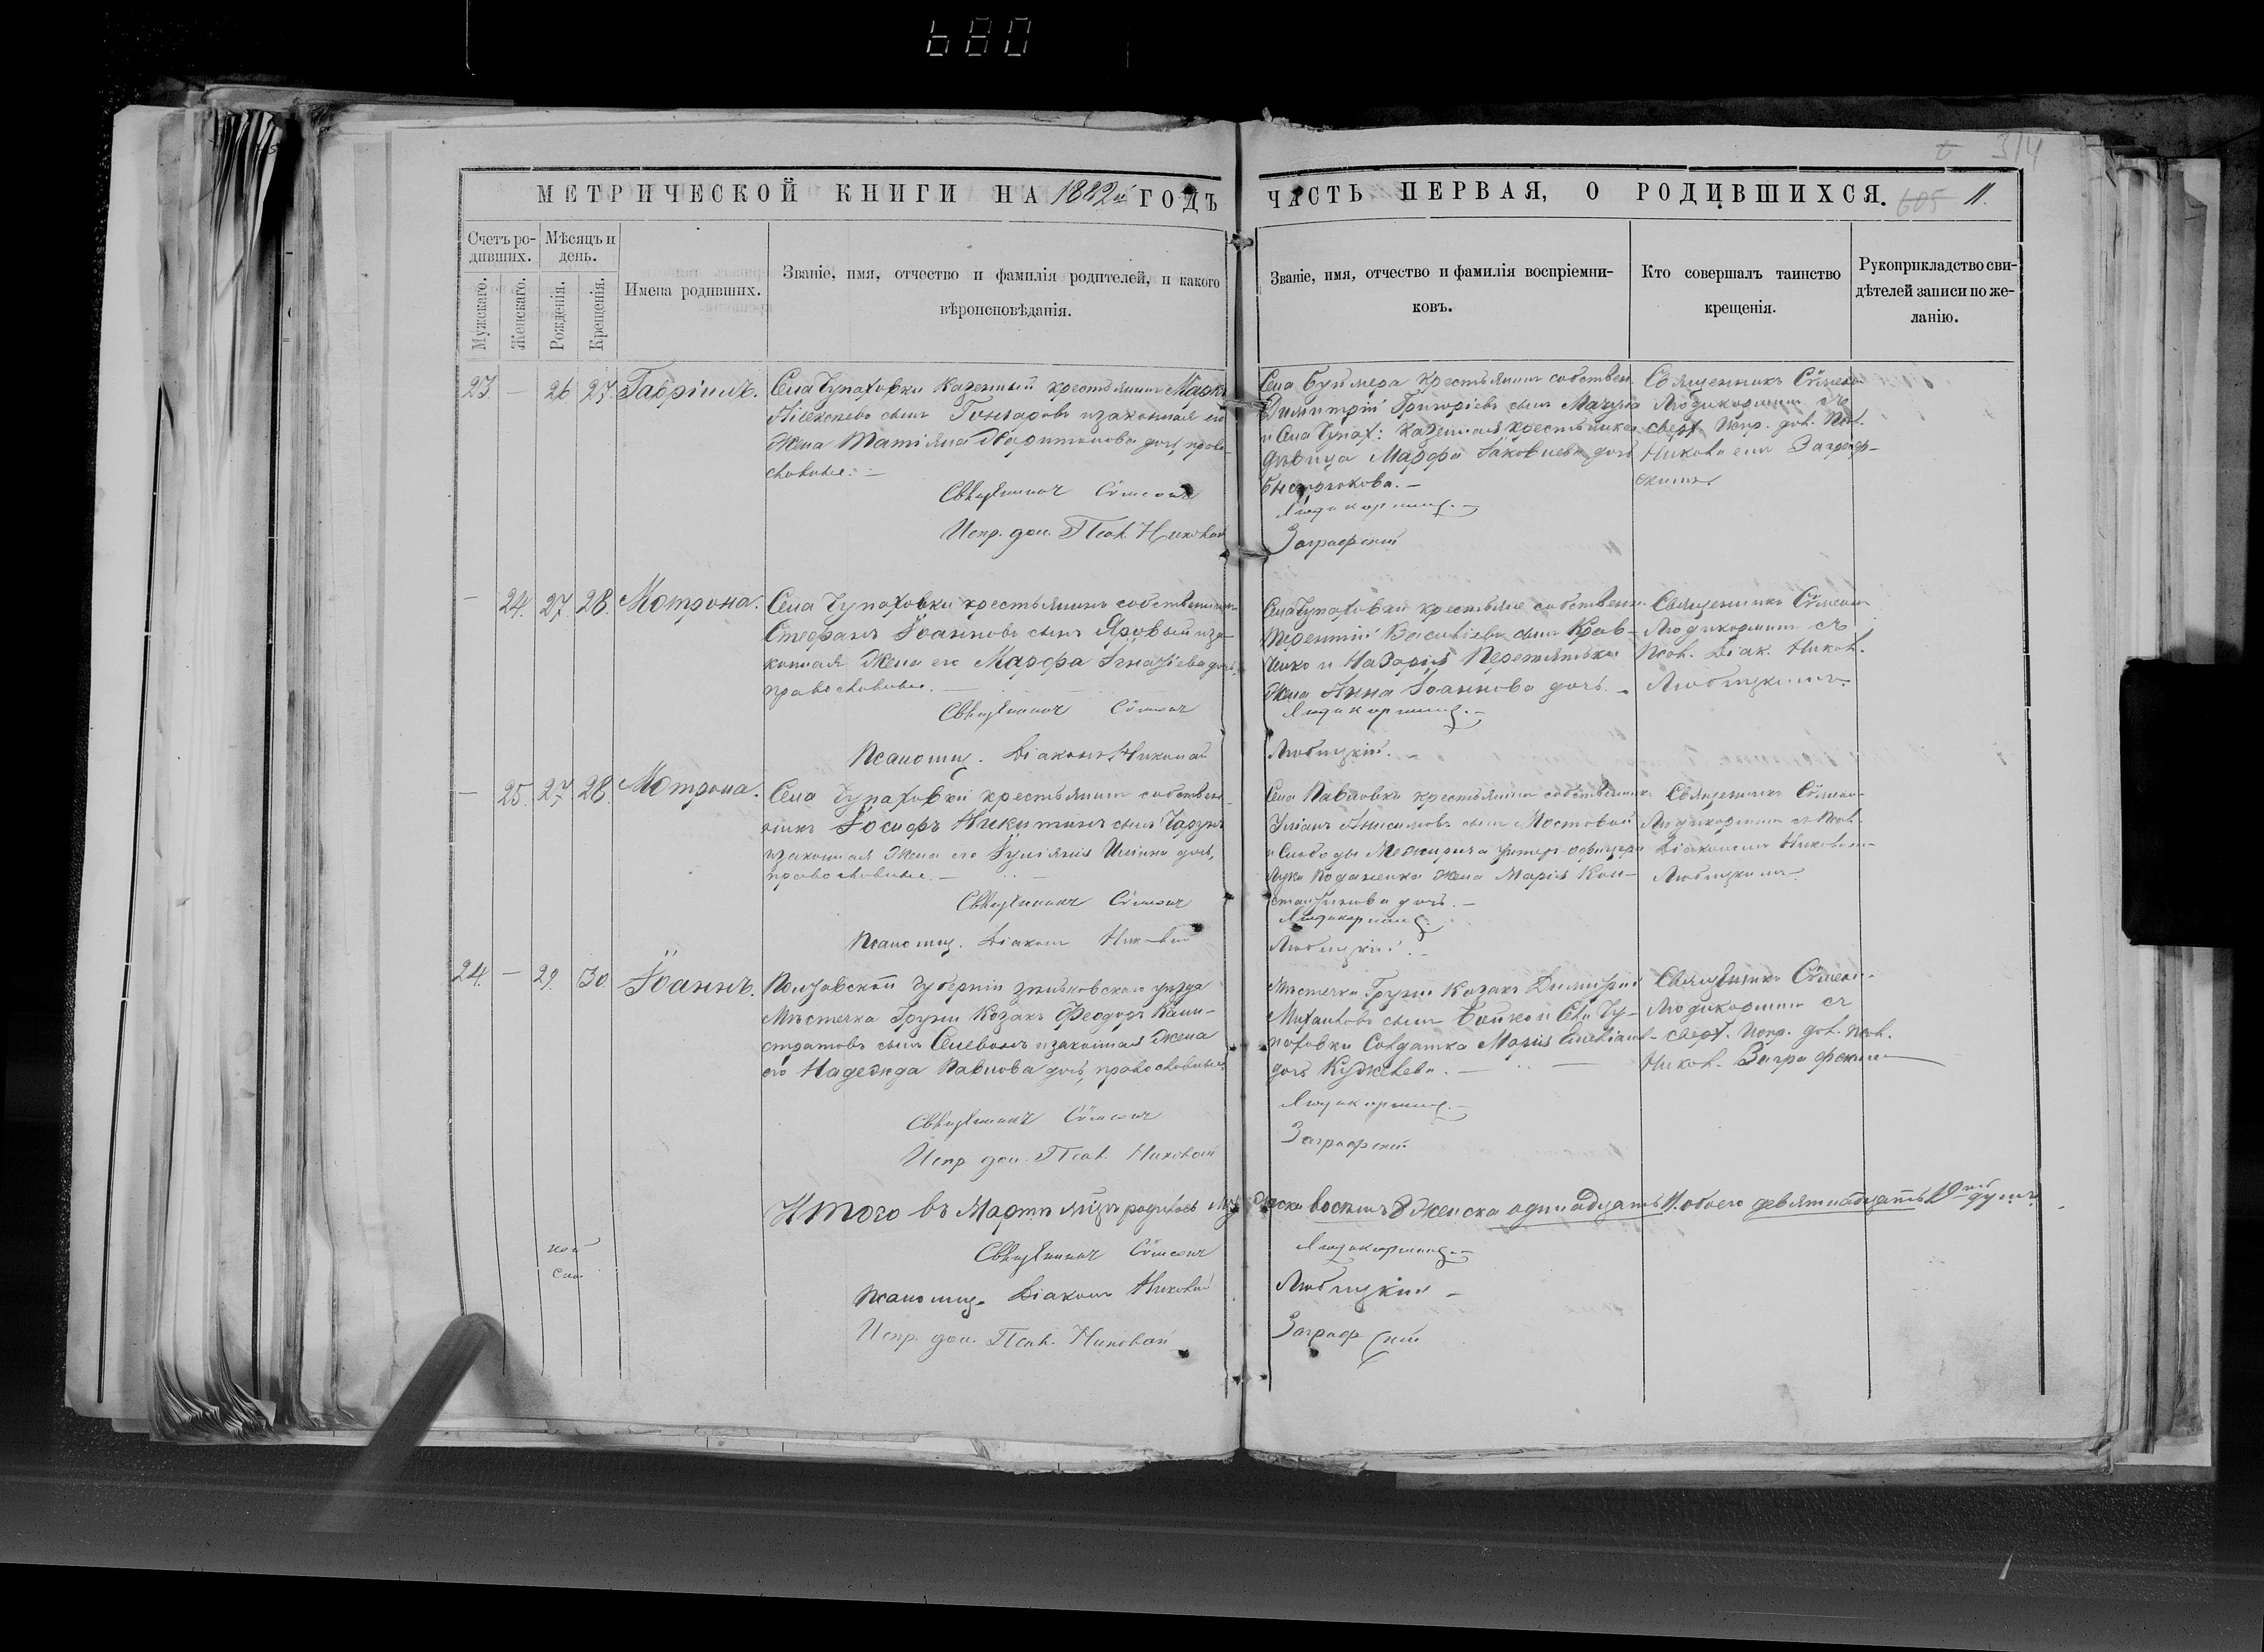 680
314
МЕТРИЧЕСКОЙ КНИГИ НА 1882й ГОДЪ ЧАСТЬ ПЕРВАЯ, О РОДИВШИХСЯ. 605 11.
Счетъ ро-
дивших.
Мѣсяцъ и
день.
Мужскаго.
Женскаго.
Рожденія.
Крещенія.
Имена родивших.
Званіе, имя, отчество и фамилія родителей, и какого
вѣроисповѣданія.
Званіе, имя, отчество и фамилія воспріемни-
ковъ.
Кто совершалъ таинство
крещенія.
Рукоприкладство сви-
дѣтелей записи по же-
ланію.
23. — 26 27. Гавріилъ.
Села Чупаховки казенный крестьянинъ Маркъ
Алексѣевъ сынъ Гончаровъ и законная его
жена Татіяна Харитонова дочь, право-
славные. —
Священникъ Сѵмеонъ
Испр. дол. Псал. Николай
Села Буймера крестьянинъ собствен.
Димитрій Григоріевъ сынъ
и Села Чупах: казенная крестьянка
дѣвица Марфа Іаковлева дочь
Людикорминъ. —
Заграфскій
Священникъ Сѵмеонъ
Людикорминъ съ
сверх. испр. дол. Псал.
Заграф-
скимъ
— 24. 27. 28. Мотрона.
Села Чупаховки крестьянинъ собственник
Стефанъ Іоанновъ сынъ Яровый и за-
конная жена его Марфа Игнатіева дочь,
православные. —
Священникъ Сѵмеонъ
Псаломщ. Діаконъ Николай
Села Чупаховки крестьяне собствен.
Терентій Василіевъ сынъ Крав-
ченко и Назарія Перетятька
жена Анна Іоаннова дочь. —
Людикорминъ. —
Любицкій. —
Священникъ Сѵмеонъ
Людикорминъ съ
Псал. Діак. Никол.
Любицкимъ.
— 25. 27. 28. Мотрона.
Села Чупаховки крестьянинъ собствен-
никъ Іосифъ Никитинъ сынъ
и законная жена его Іуліянія Ильина дочь,
православные. —
Священникъ Сѵмеонъ
Псаломщ. Діаконъ Николай
Села Павловки крестьянинъ собственник
Уліанъ Анисимовъ сынъ Мостовой
и Слободы Межирича унтер-офицера
Луки жена Марія Кон-
стантинова дочь. —
Людикорминъ.
Любицкій. —
Священникъ Сѵмеон
Людикорминъ съ Псал.
Діакономъ Николаем
Любицкимъ.
24. — 29. 30. Іоаннъ.
Полтавской губерніи зѣньковскаго уѣзда
Мѣстечка Груни Козакъ Феодоръ Кали-
стратовъ сынъ и законная жена
его Надежда Павлова дочь, православные
Священникъ Сѵмеонъ
Испр. дол. Псал. Николай
Мѣстечка Груни Козакъ Димитрій
Михаиловъ сынъ Бойко и Села Чу-
паховки Солдатка Марія Емеліан.
дочь —
Людикорминъ. —
Заграфскій
Священникъ Сѵмеон.
Людикорминъ съ
сверх. испр. дол. псал.
Никол. Заграфскимъ
Итого въ Мартѣ м̃цѣ родилось Мужеска восемь 8 Женска одинадцать 11. обоего девятнадцать 19ть душъ.
Священникъ Сѵмеонъ Людикорминъ. —
Псаломщ. Діаконъ Николай Любицкій —
Испр. дол. Псал. Николай Заграфскій